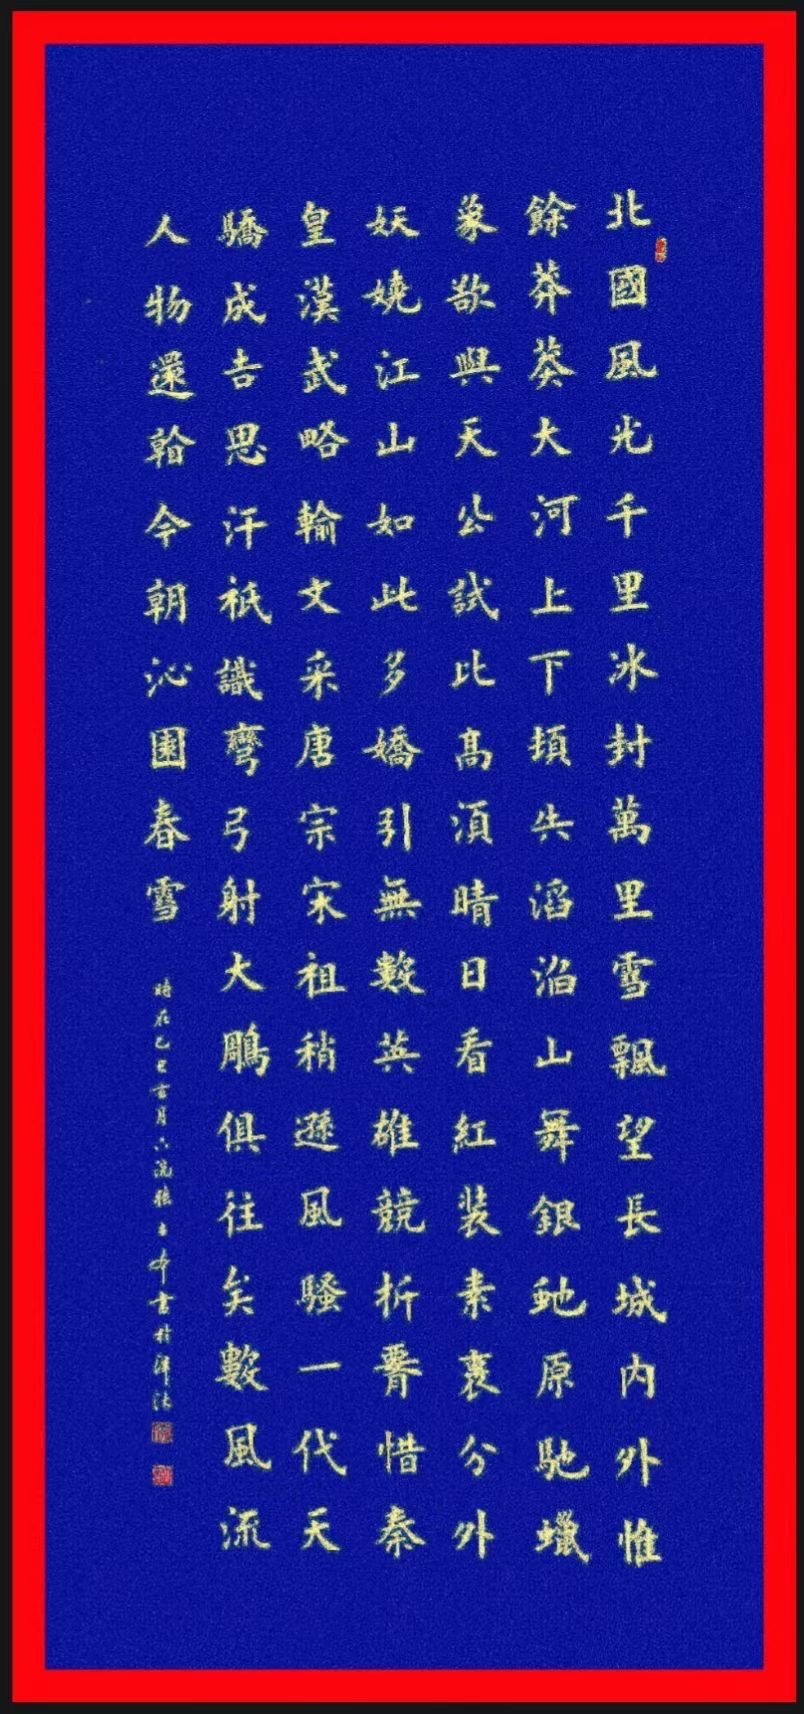 北國風光千里冰封萬里雪飄望長城內外惟
餘莽莽大河上下頓失滔滔山舞銀虵原馳蠟
象欲與天公試比高須晴日看紅裝素裹分外
妖嬈江山如此多嬌引無數英雄競折腰惜秦
皇漢武略輸文采唐宗宋祖稍遜風騷一代天
驕成吉思汗祇識彎弓射大鵰俱往矣數風流
人物還看今朝沁園春雪
時在乙巳 月 書於津沽